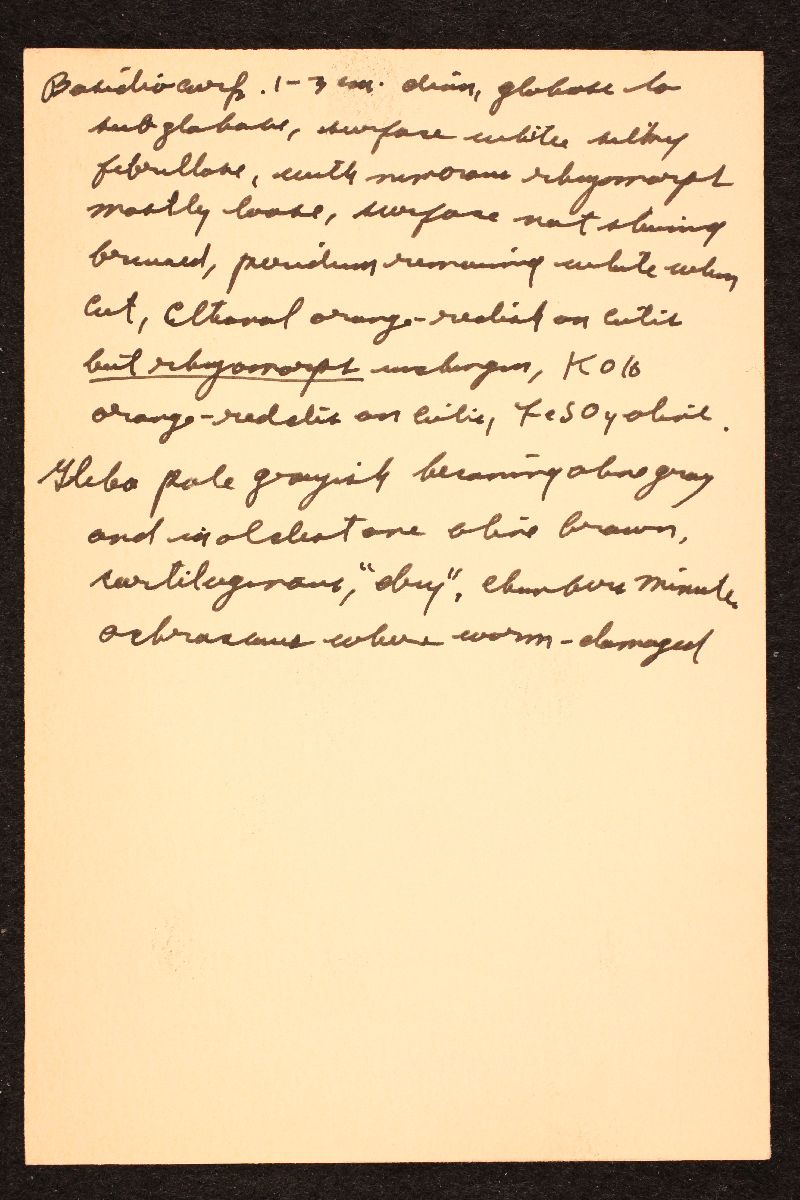 Basidiocarp. 1-3 cm. diam, globose to
subglobose, surface white silky
fibrillose, with numerous rhizomorphs
mostly loose, surface not staining
bruised, peridium remaining white when
cut, Ethanol orange-redish on cutis
but rhizomorphs unchanged, KOH
orange-reddish on cutis, FeSO4 olive.
Gleba pale grayish becoming olive gray
and in oldest one olive brown,
cartilaginous, "dry", chambers minute,
ochraceous where worm-damaged